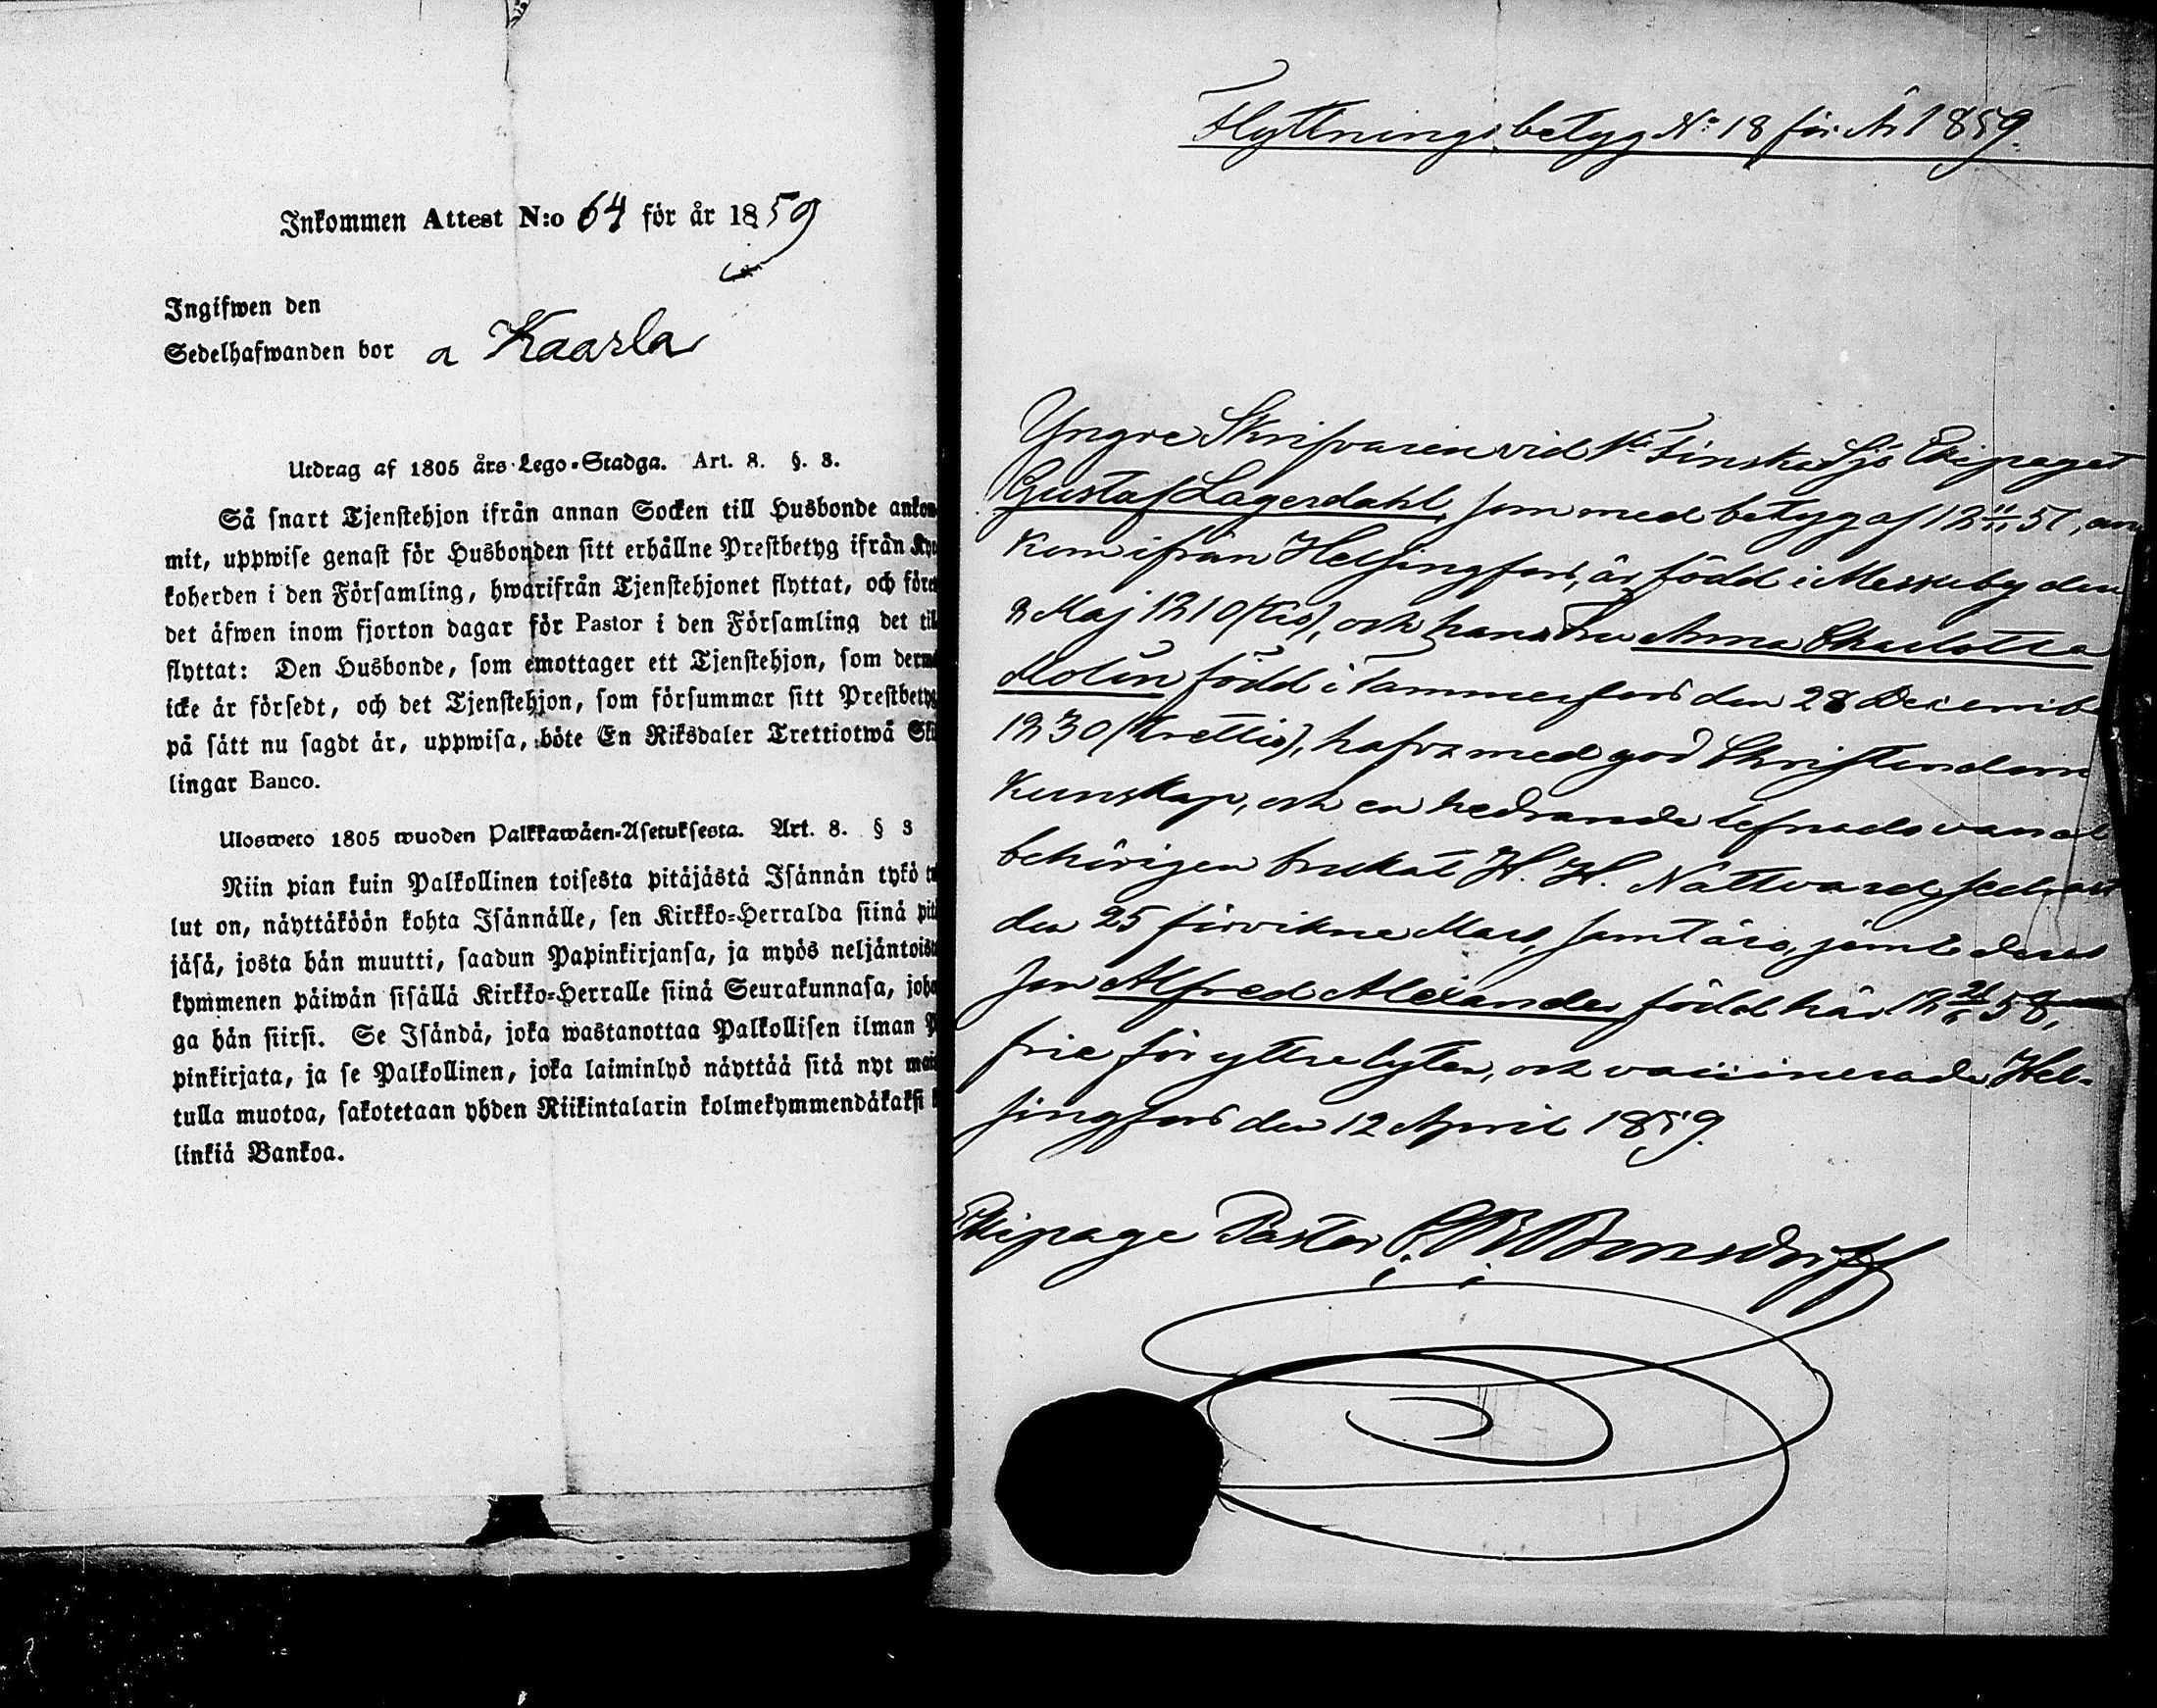 Inkommen Attest N:o 64 för år 1859
Ingifwen den
Sedelhafwanden bor a Kaarla
Utdrag af 1805 års Lego-Stadga. Art. 8. §. 3.
Så snart Tjenstehjon ifrån annan Socken till Husbonde ankom
mit, uppwise genast för Husbonden sitt erhållne Prestbetyg ifrån Kyr
koherden i den Församling, hwarifrån Tjenstehjonet flyttat, och före
det äfwen inom fjorton dagar för Pastor i den Församling det til
flyttat: Den Husbonde, som emottager ett Tjenstehjon, som derm
icke är försedt, och det Tjenstehjon, som försummar sitt Prestbetyg
på sätt nu sagdt är, uppwisa, böte En Riksdaler Trettiotwå Ski
lingar Banco.
Ulosweto 1805 wuoden Palkkawäen-Asetuksesta. Art. 8. § 3
Niin pian kuin Palkollinen toisesta pitäjästä Isännän tykö tu
lut on, näyttäköön kohta Isännälle, sen Kirkko-Herralda siinä pitä
jäsä, josta hän muutti, saadun Papinkirjansa, ja myös neljäntoista
kymmenen päiwän sisällä Kirkko-Herralle siinä Seurakunnasa, joho
ga hän siirsi. Se Isändä, joka wastanottaa Palkollisen ilman P
pinkirjata, ja se Palkollinen, joka laiminlyö näyttää sitä nyt mai
tulla muotoa, sakotetaan yhden Riikintalarin kolmekymmendäkaksi
linkiä Bankoa.
Flyttningsbetyg No 18 för År 1859.
Yngre Skrifvaren vid 1sta Finska Sjö Ekipaget
Gustaf Lagerdahl, som med betyg af 18 57, an
kom ifrån Helsingfors, är född i Messuby den
8 Maj 1810 (tio), och hans Fru Anna Charlotta
Molin född i Tammerfors den 28 Decemb
1830 (trettio), hafva med god Christendoms
kunskap, och en hedrande lefnadsvandel
behörigen brukat H. H. Nattvard, sednast
den 25 förvikne Mars, samt äro, jemte deras
Son Alfred Alexander född här 18 58,
frie för yttre lyten, och vaccinerade. Hel-
singfors den 12 April 1859.
Ekipage Pastor